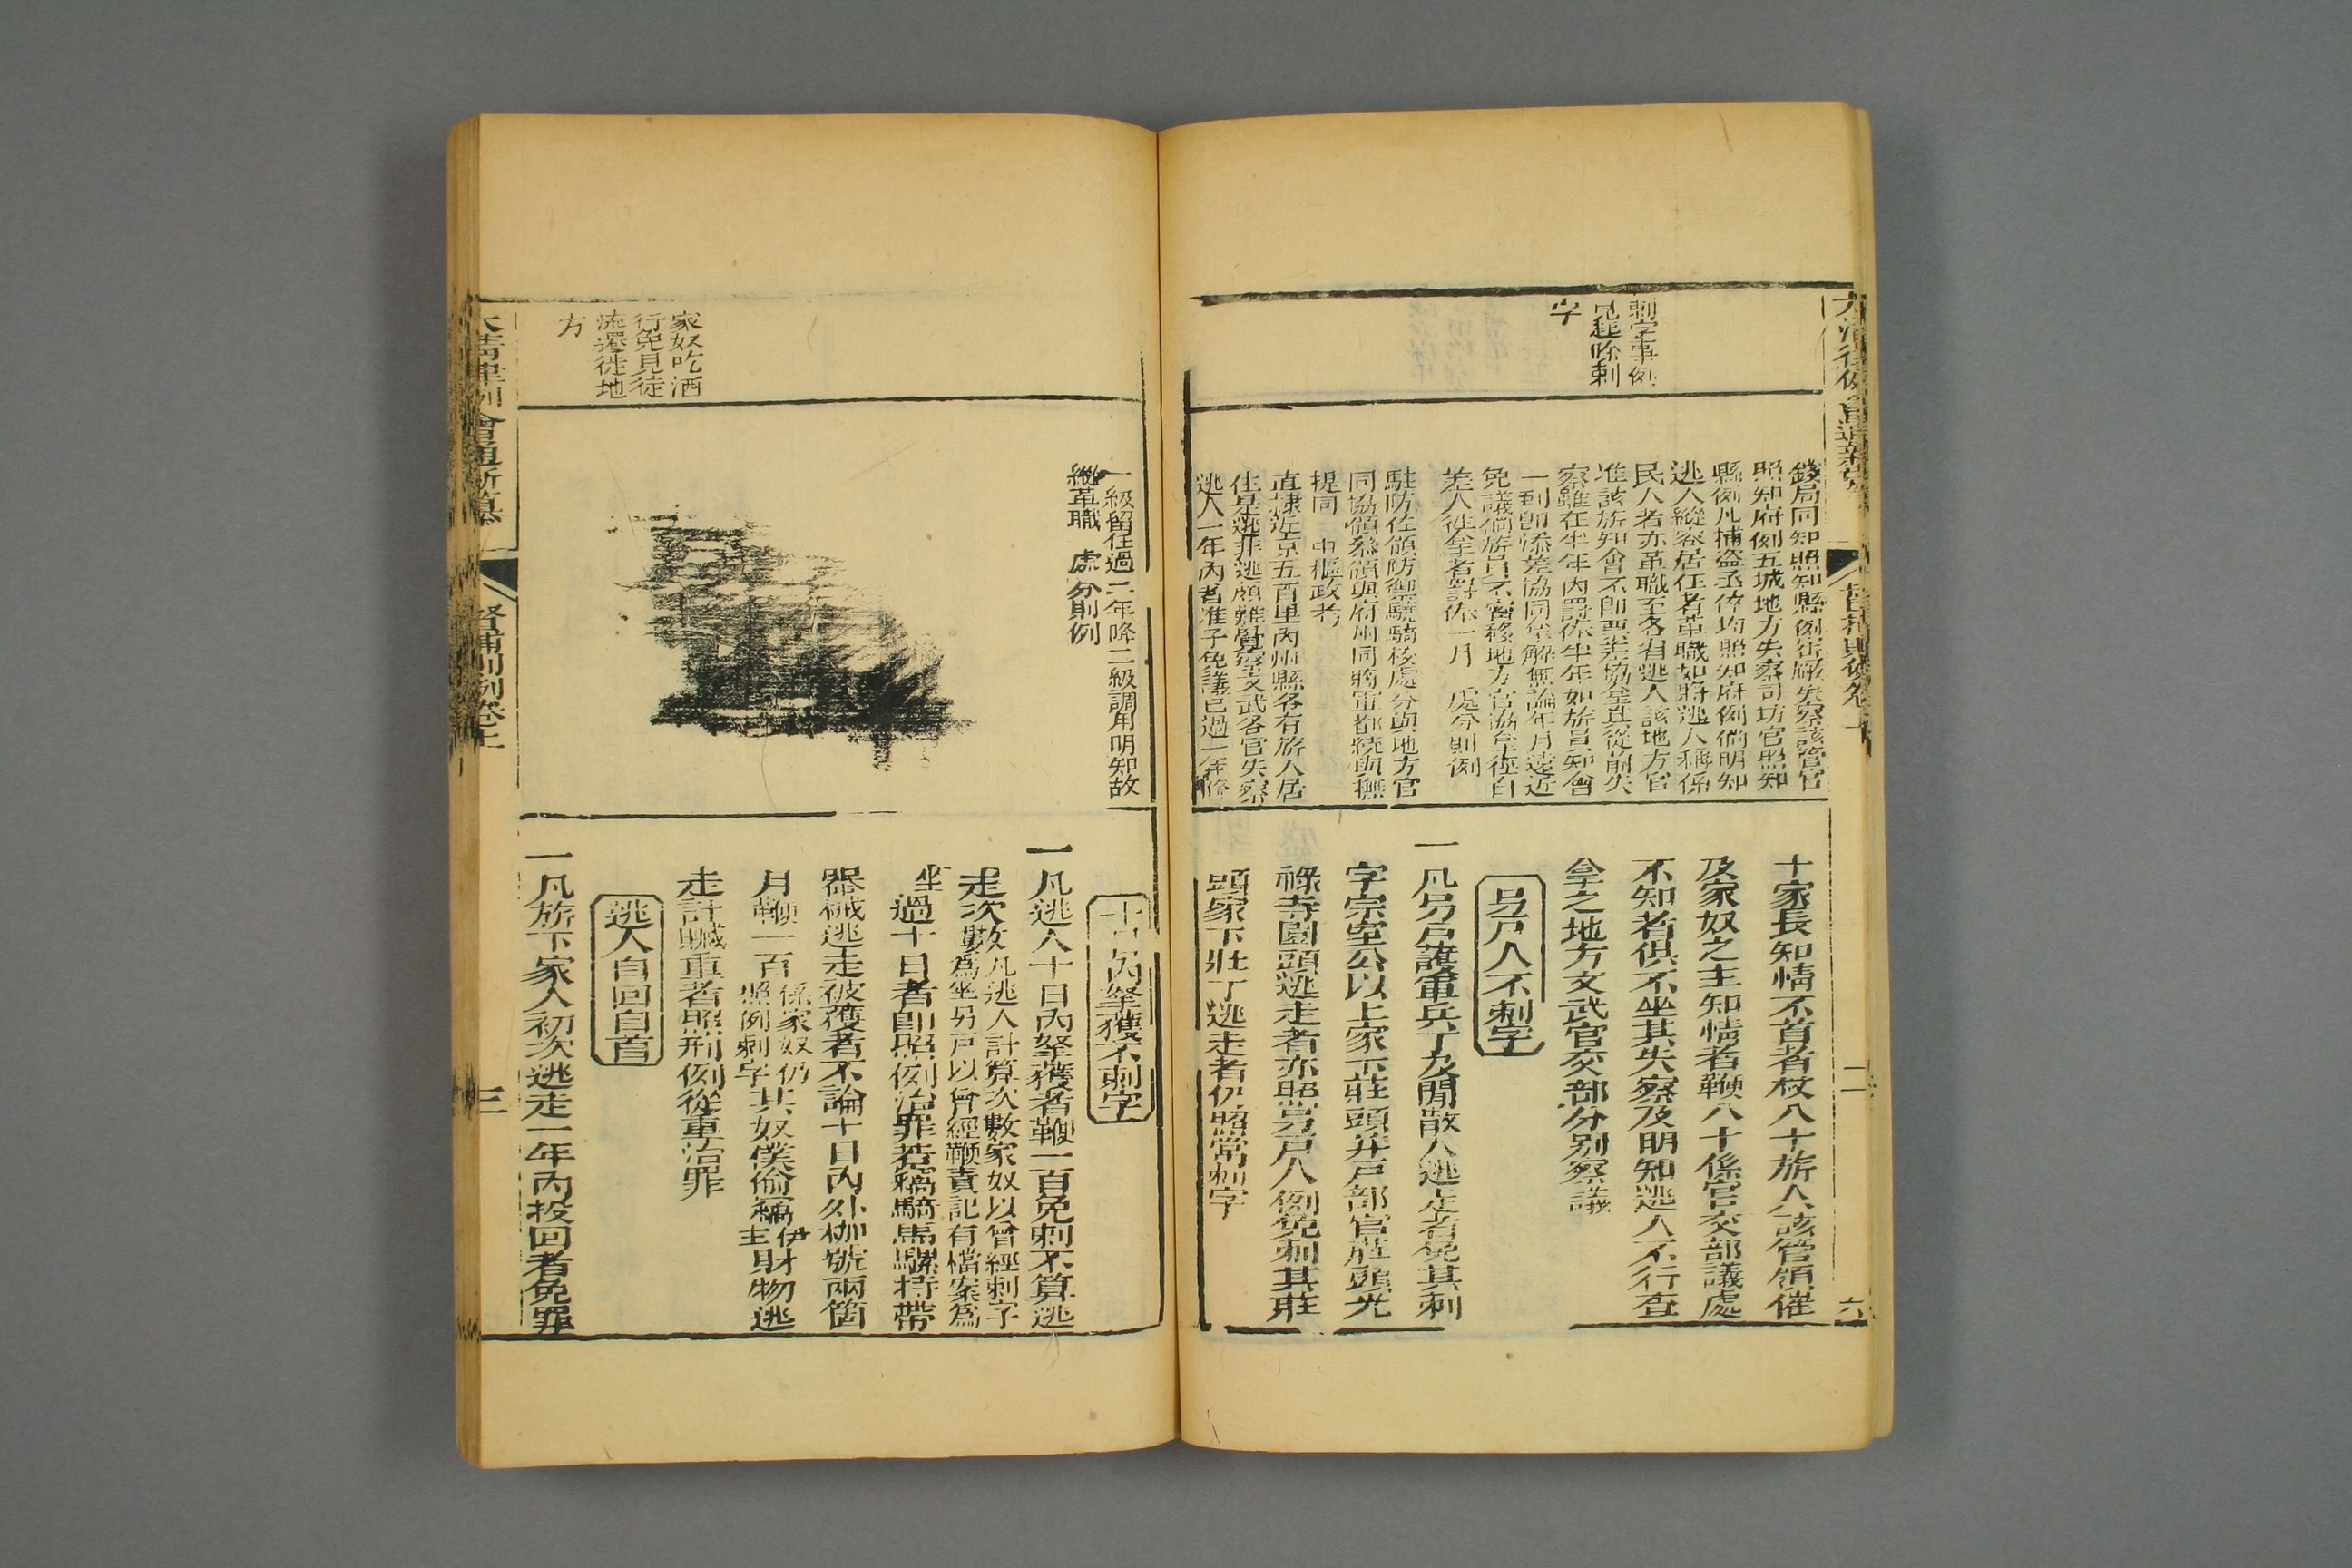 剌字事例
見起除剌
字
錢局同知照知縣例密緝失察該管官
照知府例五城地方失察司坊官照知
縣例凡捕盗丞倅均照知府例倘明知
逃人縱容居住者革職如將逃人稱係
民人者亦革職至各省逃人該地方官
准該旂知會不即票差協拿且從前失
察雖在半年內罰俸半年如旂員知會
一到即添差協同拿解無論年月遠近
免議倘旂員不密移地方官協拿徑自
差人往拿者罰俸一月 處分則例
駐防佐領防御驍騎校處分與地方官
同協領叅領與府州同將軍都統與撫
提同 中樞政考
直隷近京五百里內州縣各有旂人居
住是逃非逃頗難覺察文武各官失察
逃人一年內者准予免議已過一年降
十家長知情不首者杖八十旂人該管領催
及家奴之主知情者鞭八十係官交部議處
不知者俱不坐其失察及明知逃人不行查
拿之地方文武官交部分别察議
另戶人不剌字
一凡另戶護軍兵丁及閒散人逃走者免其剌
字宗室公以上家下莊頭并戶部官莊頭光
祿寺園頭逃走者亦照另戶人例免剌其莊
頭家下壯丁逃走者仍照常剌字
二
一級留任過二年降二級調用明知故
縱革職 處分則例
家奴吃酒
行兇見徒
流遷徙地
方
十日內拏獲不剌字
一凡逃人十日內拏獲者鞭一百免剌不算逃
走次數凡逃人計算次數家奴以曾經剌字
為坐另戶以曾經鞭責記有檔案為
坐過十日者即照例治罪若竊騎馬騾持帶
器械逃走被獲者不論十日內外枷號兩箇
月鞭一百係家奴仍
照例剌字其奴僕偷竊伊
主財物逃
走計贓重者照刑例從重治罪
逃人自回自首
一凡旂下家人初次逃走一年內投回者免罪
大清律例會通新纂
督捕則例卷上
三